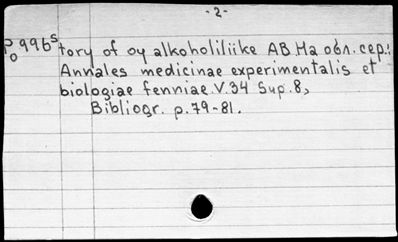 -2-
P⁰99бˢ tory of oy alkoholiliike AB На обл. сер.:
Annales medicinae experimentalis et
biologiae fenniae. V.34 Sup.8,
Bibliogr. p.79-81.